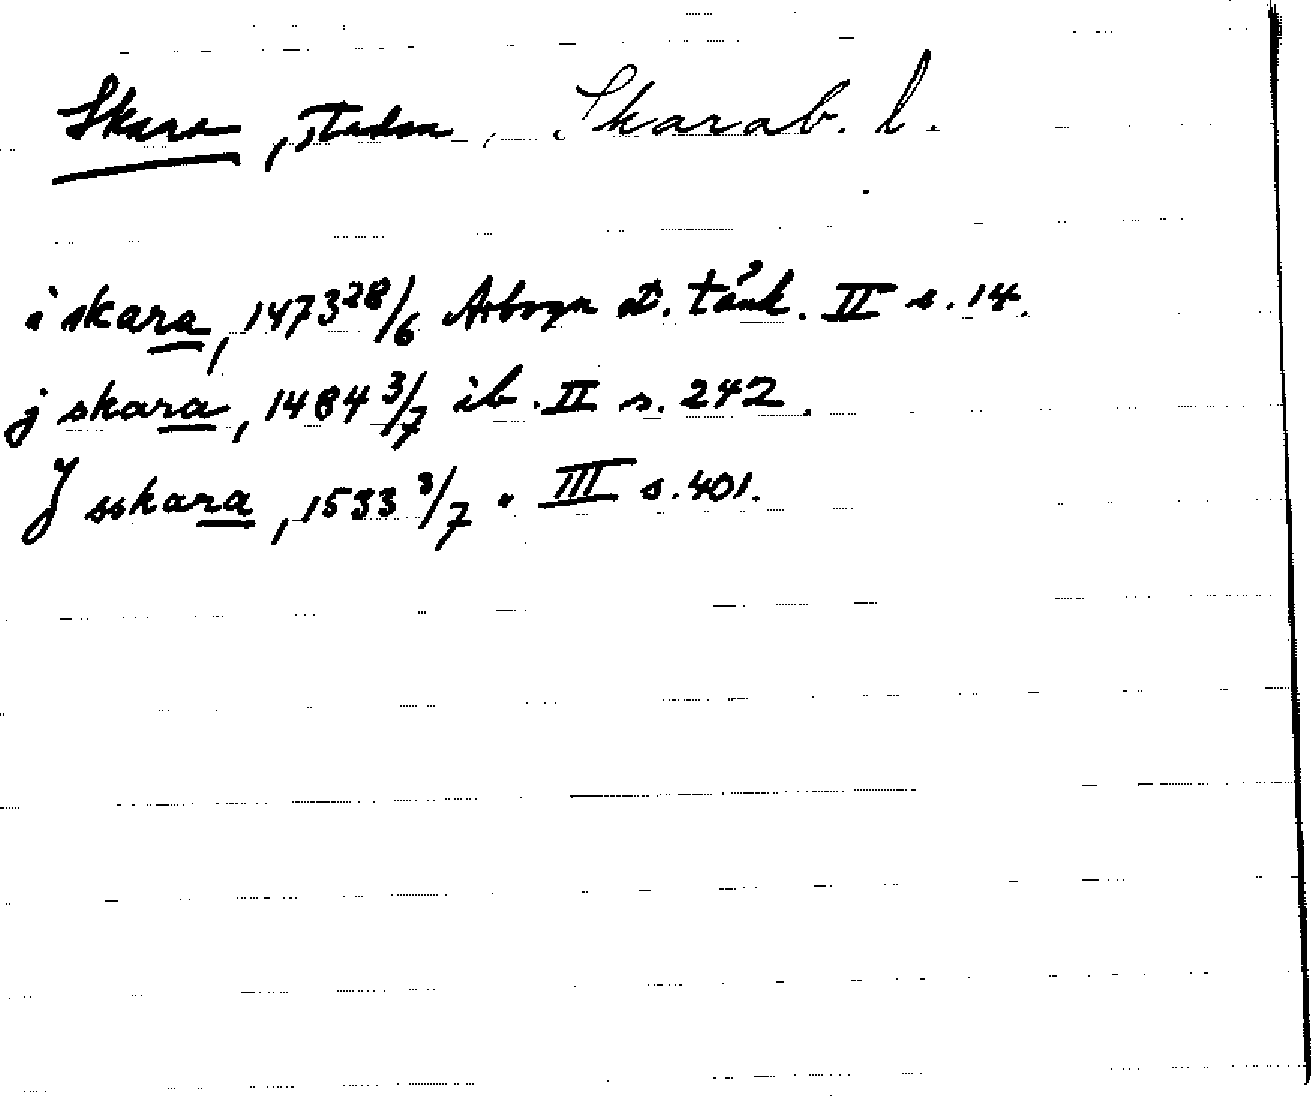 Skara, staden, Skarab. l.
i skara, 1473 28/6 Arboga st. tänk. II s. 14.
j skara, 1484 3/7 ib. II s. 242.
J sskara, 1533 3/7 " III s. 401.